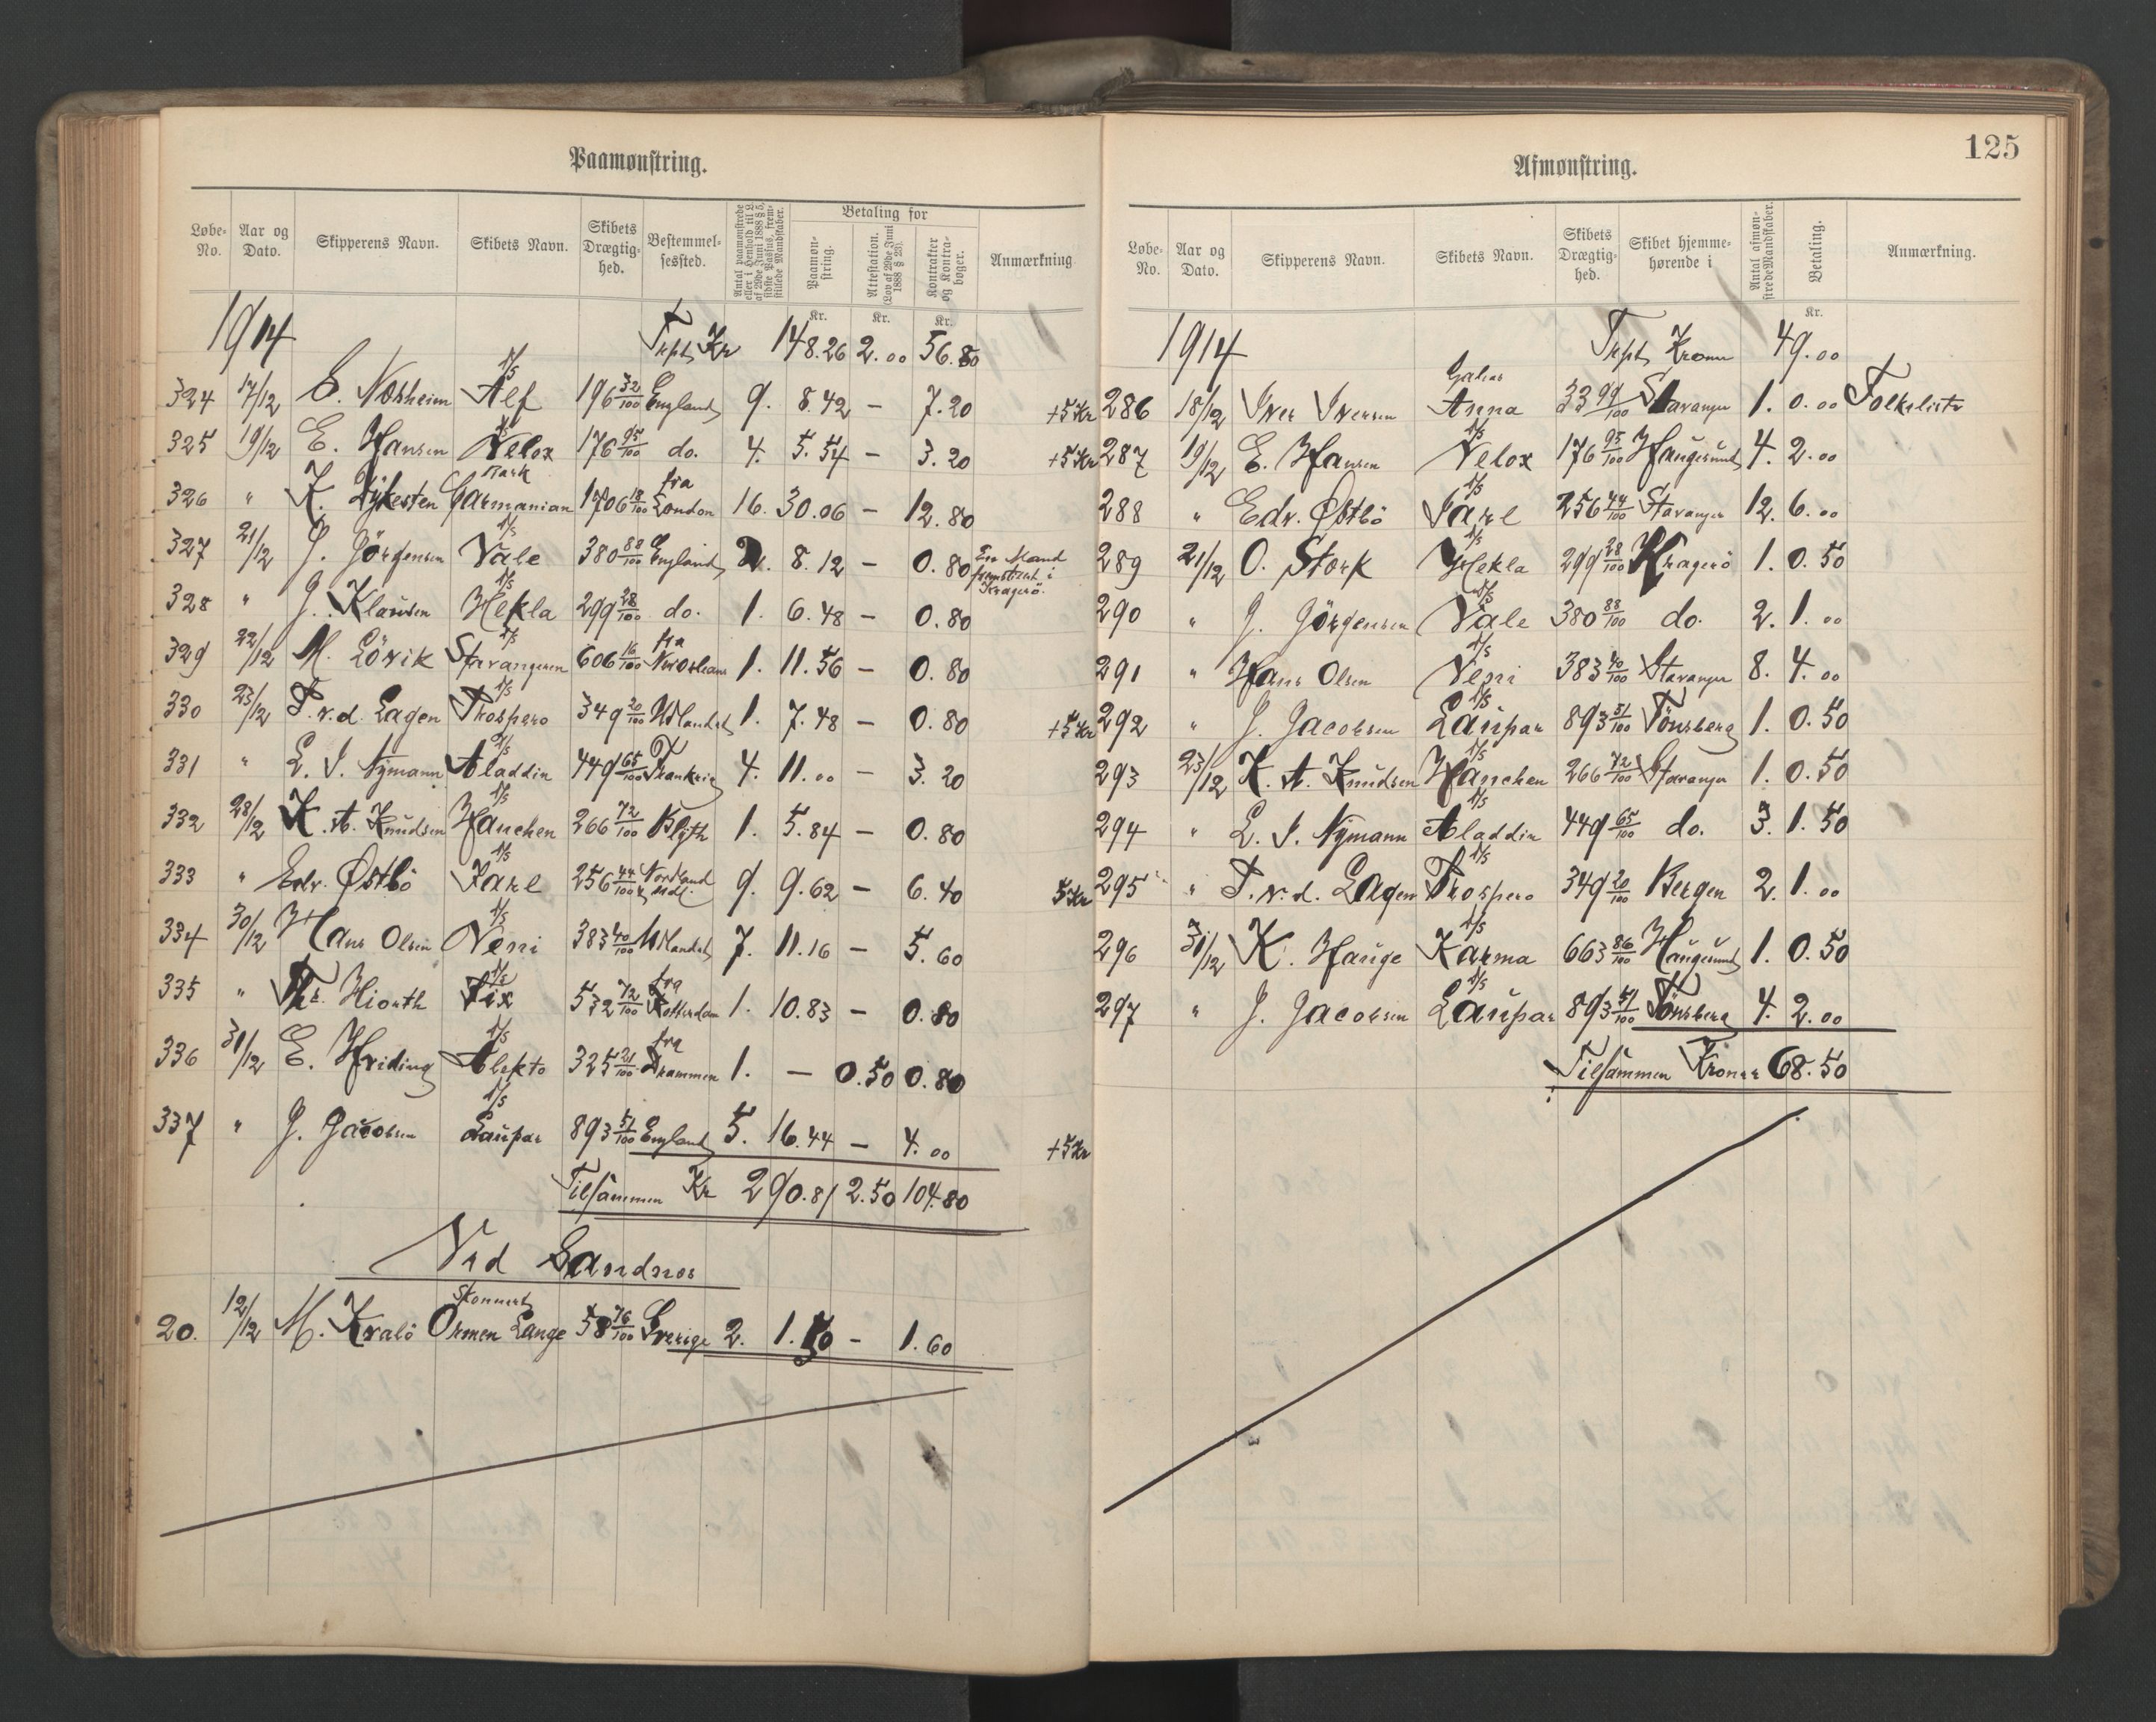 Paamønstring.
Løbe-No. Aar og Dato. Skipperens Navn. Skibets Navn. Skibets Drægtighed. Bestemmelsessted. Antal paamønstrede eller i Henhold til L. af 29de Juni 1888 § 5, sidste Passus, fremstillede Mandskaber. Betaling for Paamønstring. Attestation. (Lov af 29de Juni 1888 § 23). Kontrakter og Kontrabøger. Anmærkning
Kr. Kr. Kr.
1914 Trpt Kr 148.26 2.00 56.80
324 17/12 E. Norheim D/S Alf 196 32/100 England 9. 8.42 — 7.20 +5 Kr
325 19/12 E. Hansen D/S Velox 176 95/100 do. 4. 5.54 — 3.20 +5 Kr
326 " K. Dykesten Bark Garmanian 1706 18/100 fra London 16. 30.06 — 12.80
327 21/12 J. Jörgensen D/S Vale 380 88/100 England 2. 8.12 — 0.80 En Mand fremstillet i Kragerø.
328 " J. Klausen D/S Hekla 299 28/100 do. 1. 6.48 — 0.80
329 22/12 M. Lövik D/S Stavangeren 606 16/100 fra 1. 11.56 — 0.80
330 23/12 T. v. d. Lagen D/S Prospero 349 20/100 Udlandet 1. 7.48 — 0.80 +5 Kr
331 " L. J. Nymann D/S Aladdin 449 65/100 Frankrig 4. 11.00 — 3.20
332 28/12 K. A. Knudsen D/S Hanchen 266 72/100 Blyth 1. 5.84 — 0.80
333 " Edv. Østbö D/S Jarl 256 44/100 Nordland & Udl. 9. 9.62 — 6.40 5 Kr
334 30/12 Hans Olsen D/S Veni 383 40/100 Udlandet 7. 11.16 — 5.60
335 " Thr. Hiorth D/S Fix 532 72/100 fra Rotterdam 1. 10.83 — 0.80
336 31/12 E. Hviding D/S Alekto 325 21/100 fra Drammen 1. — 0.50 0.80
337 " J. Jacobsen D/S Laupar 893 51/100 England 5. 16.44 — 4.00 +5 Kr
Tilsammen Kr 290.81 2.50 104.80
Ved Sandnes
20. 12/12 M. Kvalö Skonnert Ormen Lange 58 76/100 Sverige 2. 1.50 — 1.60
125
Afmønstring.
Løbe-No. Aar og Dato. Skipperens Navn. Skibets Navn. Skibets Drægtighed. Skibet hjemmehørende i Antal afmønstrede Mandskaber. Betaling. Anmærkning.
Kr.
1914 Trpt Kroner 49.00
286 18/12 Iver Iversen Galeas Anna 33 99/100 Stavanger 1. 0.00 Folkeliste
287 19/12 E. Hansen D/S Velox 176 95/100 Haugesund 4. 2.00
288 " Edv. Østbö D/S Jarl 256 44/100 Stavanger 12. 6.00
289 21/12 O. Stork D/S Hekla 299 28/100 Kragerö 1. 0.50
290 " J. Jörgensen D/S Vale 380 88/100 do. 2. 1.00
291 " Hans Olsen D/S Veni 383 40/100 Stavanger 8. 4.00
292 " J. Jacobsen D/S Laupar 893 51/100 Tönsberg 1. 0.50
293 23/12 K. A. Knudsen D/S Hanchen 266 72/100 Stavanger 1. 0.50
294 " L. J. Nymann D/S Aladdin 449 65/100 do. 3. 1.50
295 " T. v. d. Lagen D/S Prospero 349 20/100 Bergen 2. 1.00
296 31/12 K. Hauge D/S Karma 663 86/100 Haugesund 1. 0.50
297 " J. Jacobsen D/S Laupar 893 51/100 Tönsberg 4. 2.00
Tilsammen Kroner 68.50